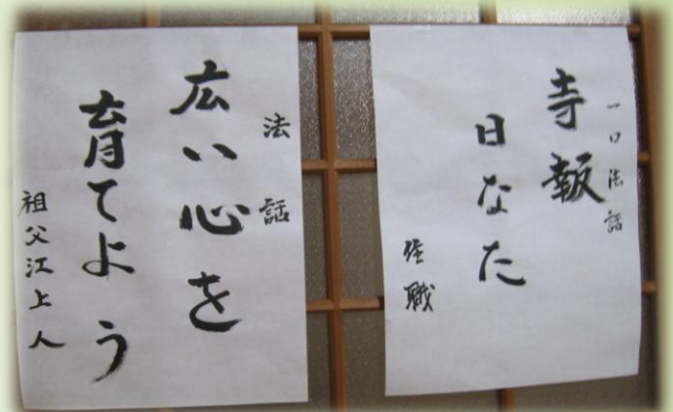 一口法話
寺報
日なた
住職
法話
広い心を
育てよう
祖父江上人